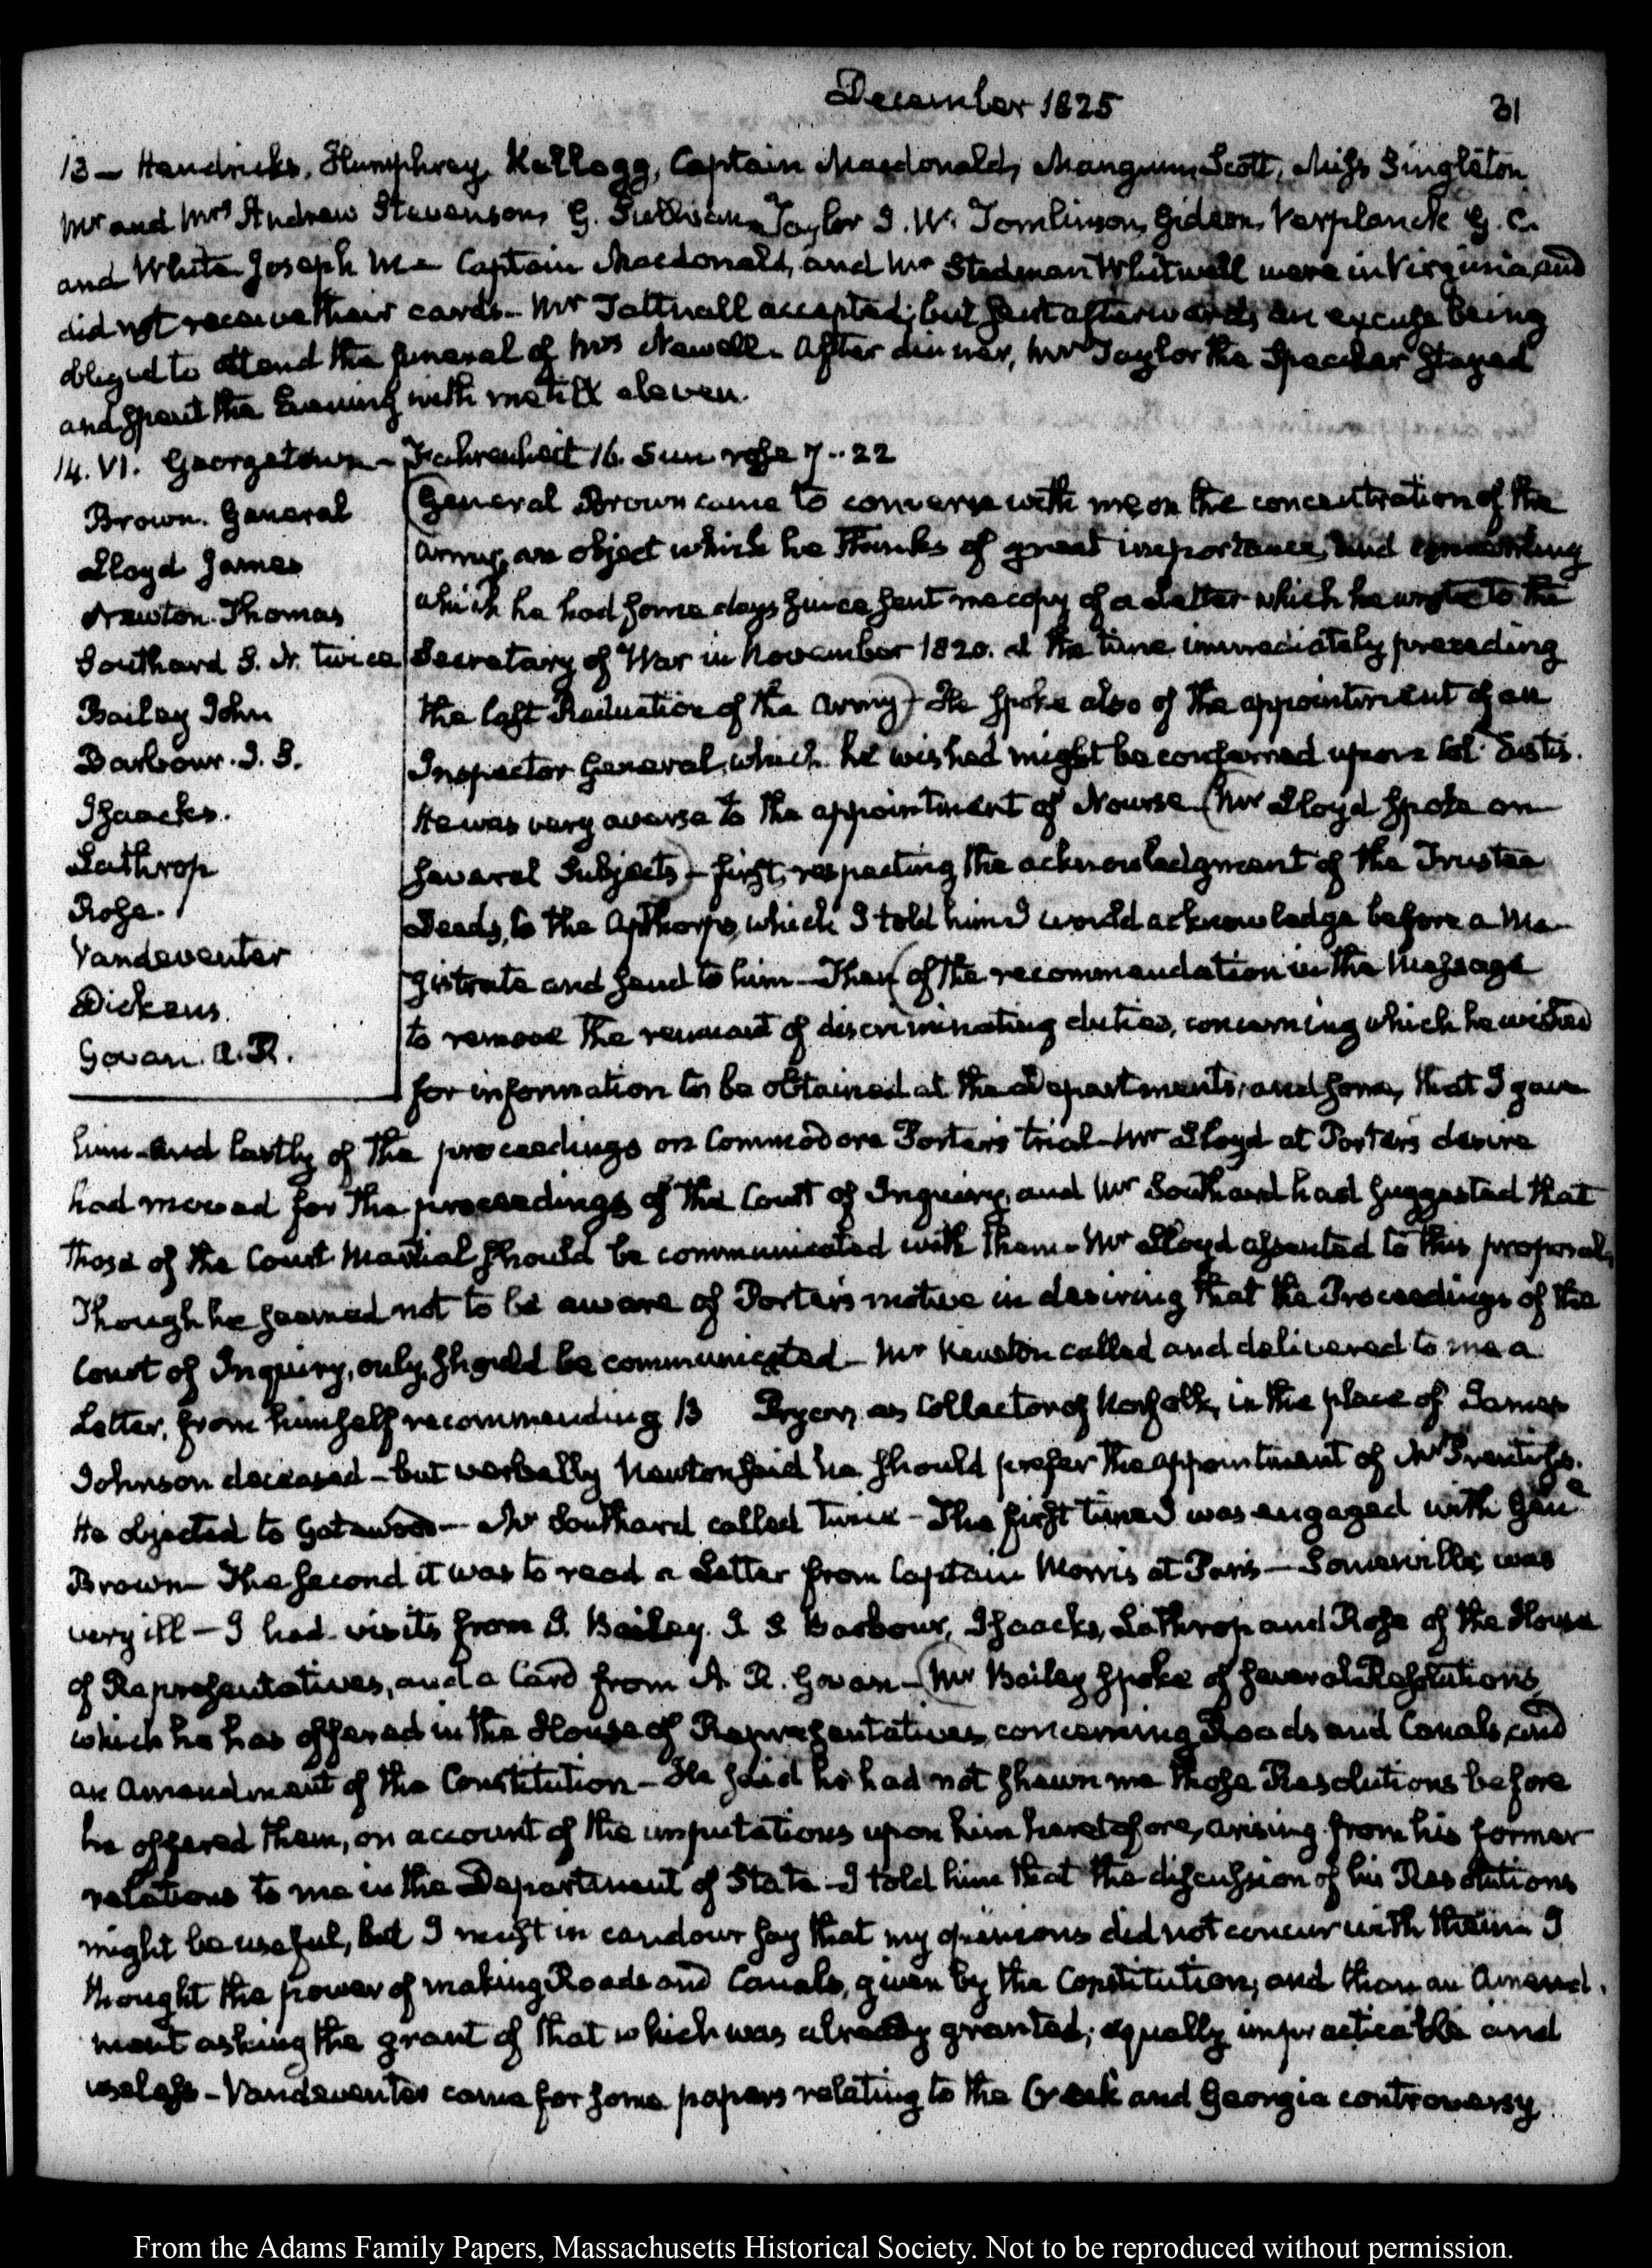 December 1825
31
13 — Hendricks, Humphrey, Kellogg, Captain Macdonald, Mangum, Scott, Miss Singleton
Mr and Mrs Andrew Stevenson, G. Taylor J. W. Tomlinson, Gideon, Verplanck G. C.
and White Joseph M – Captain Macdonald, and Mr Stedman Whitwell were in Virginia, and
did not receive their cards – Mr Tattnall accepted; but sent afterwards, an excuse being
obliged to attend the funeral of Mrs Newell. After dinner, Mr Taylor the Speaker stayed
and spent the Evening with me till eleven.
14. VI. Georgetown – Fahrenheit 16. Sun rose 7..22
Brown. General
Lloyd James
Newton. Thomas
Southard S. twice
Bailey John
Barbour. J. S.
Isaacks.
Lathrop
Rose.
Vandeventer
Dickens.
Govan. A. R.
(General Brown came to converse with me, on the concentration of the
army, an object which he thinks of great importance, and concerning
which he had some days since sent me copy of a Letter which he wrote to the
Secretary of War in November 1820. at the time immediately preceding
the last Reduction of the Army) – He spoke also of the appointment of an
Inspector General, which he wished might be conferred upon Col.
He was very averse to the appointment of Nourse – (Mr Lloyd spoke on
several Subjects) – first, respecting the acknowledgment of the Trustee
Deeds, to the Apthorps, which I told him I would acknowledge before a Ma-
gistrate and send to him – Then (of the recommendation in the Message
to remove the remnant of discriminating duties, concerning which he wished
for information to be obtained at the Departments; and some, that I gave
him – and lastly of the proceedings on Commodore Porter's trial – Mr Lloyd at Porter's desire
had moved for the proceedings of the Court of Inquiry, and Mr Southard had suggested that
those of the Court Martial should be communicated with them – Mr Lloyd assented to this proposal,
Though he seemed not to be aware of Porter's motive in desiring that the Proceedings of the
Court of Inquiry, only, should be communicated – Mr Newton called and delivered to me a
Letter, from himself recommending B Pryor, as Collector of Norfolk, in the place of James
Johnson deceased – but verbally Newton said he should prefer the appointment of Mr Prentiss.
He objected to Gatewood – Mr Southard called twice – The first time I was engaged with Genl
Brown – The second it was to read a Letter from Captain Morris at Paris – Somerville was
very ill – I had visits from J. Bailey. J. S. Barbour, Isaacks, Lathrop and Rose of the House
of Representatives, and a Card from A. R. Govan – (Mr Bailey spoke of several Resolutions
which he has offered in the House of Representatives, concerning Roads and Canals, and
an Amendment of the Constitution – He said he had not shewn me those Resolutions before
he offered them, on account of the imputations upon him heretofore, arising from his former
relations to me in the Department of State – I told him that the discussion of his Resolutions
might be useful, but I must in candour say that my opinions did not concur with them – I
thought the power of making Roads and Canals, given by the Constitution; and than an Amend-
ment asking the grant of that which was already granted; equally impracticable and
useless – Vandeventer came for some papers relating to the Creek and Georgia controversy
From the Adams Family Papers, Massachusetts Historical Society. Not to be reproduced without permission.